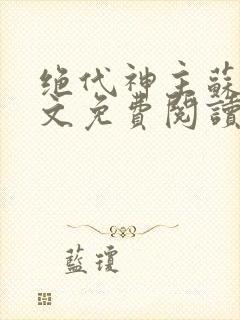 绝代神主蘇
文免費閱讀
藍瓊